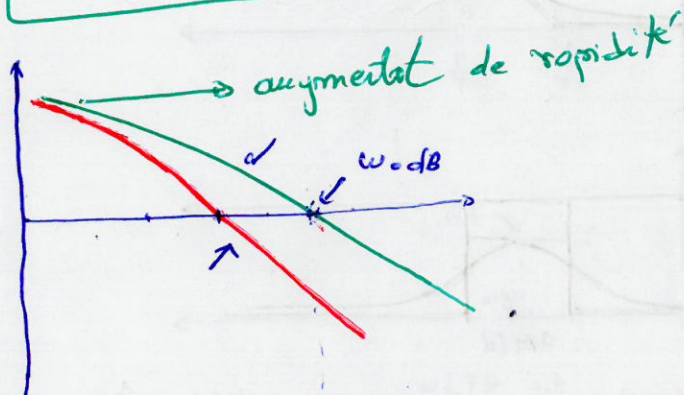 augmentat de rapidité
ω0dB